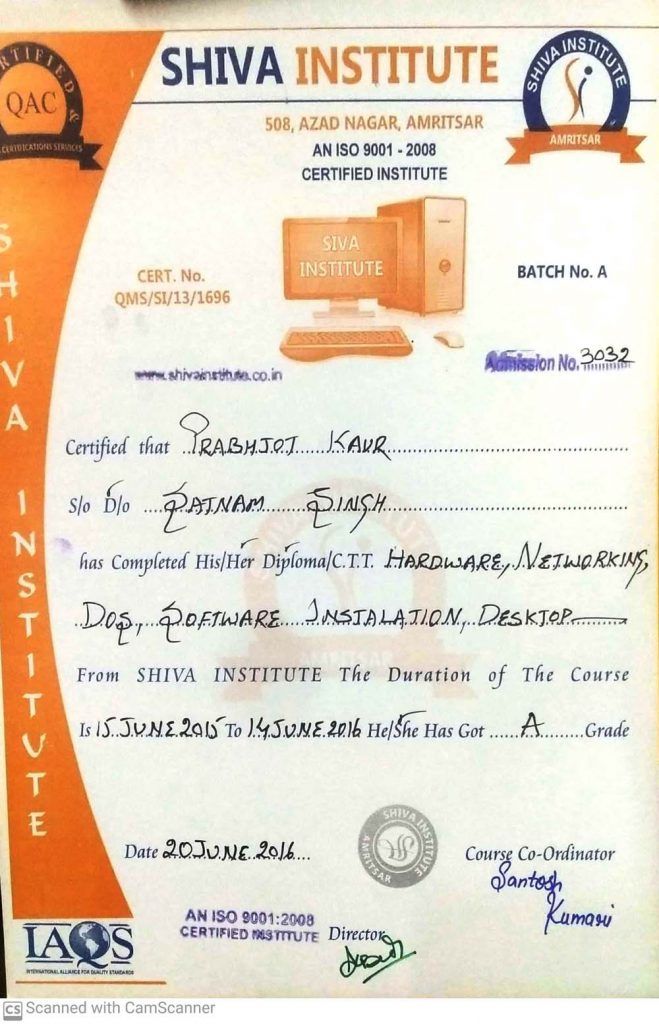 CERTIFIED &
QAC
CERTIFICATIONS SERVICES
SHIVA INSTITUTE
SHIVA INSTITUTE
AMRITSAR
508, AZAD NAGAR, AMRITSAR
AN ISO 9001 - 2008
CERTIFIED INSTITUTE
SIVA
INSTITUTE
CERT. No.
QMS/SI/13/1696
BATCH No. A
www.shivainstitute.co.in
Admission No. 3032
SHIVA INSTITUTE
Certified that PRABHJOT KAUR
S/o D/o SATNAM SINGH
has Completed His/Her Diploma/C.T.T. HARDWARE, NETWORKING,
DOS, SOFTWARE INSTALATION, DESKTOP
AMRITSAR
From SHIVA INSTITUTE The Duration of The Course
Is 15 JUNE 2015 To 14 JUNE 2016 He/She Has Got A Grade
SHIVA INSTITUTE
AMRITSAR
Date 20 JUNE 2016
Course Co-Ordinator
Santosh
Kumari
AN ISO 9001:2008
CERTIFIED INSTITUTE
Director
IAQS
INTERNATIONAL ALLIANCE FOR QUALITY STANDARDS
CS Scanned with CamScanner